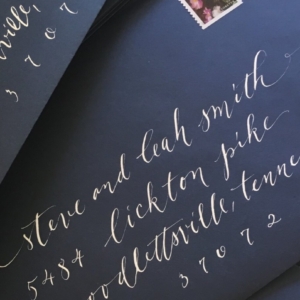 ville,
3 7 0 7
steve and leah smith
5484 lickton pike
oodlettsville, tenne
3 7 0 7 2